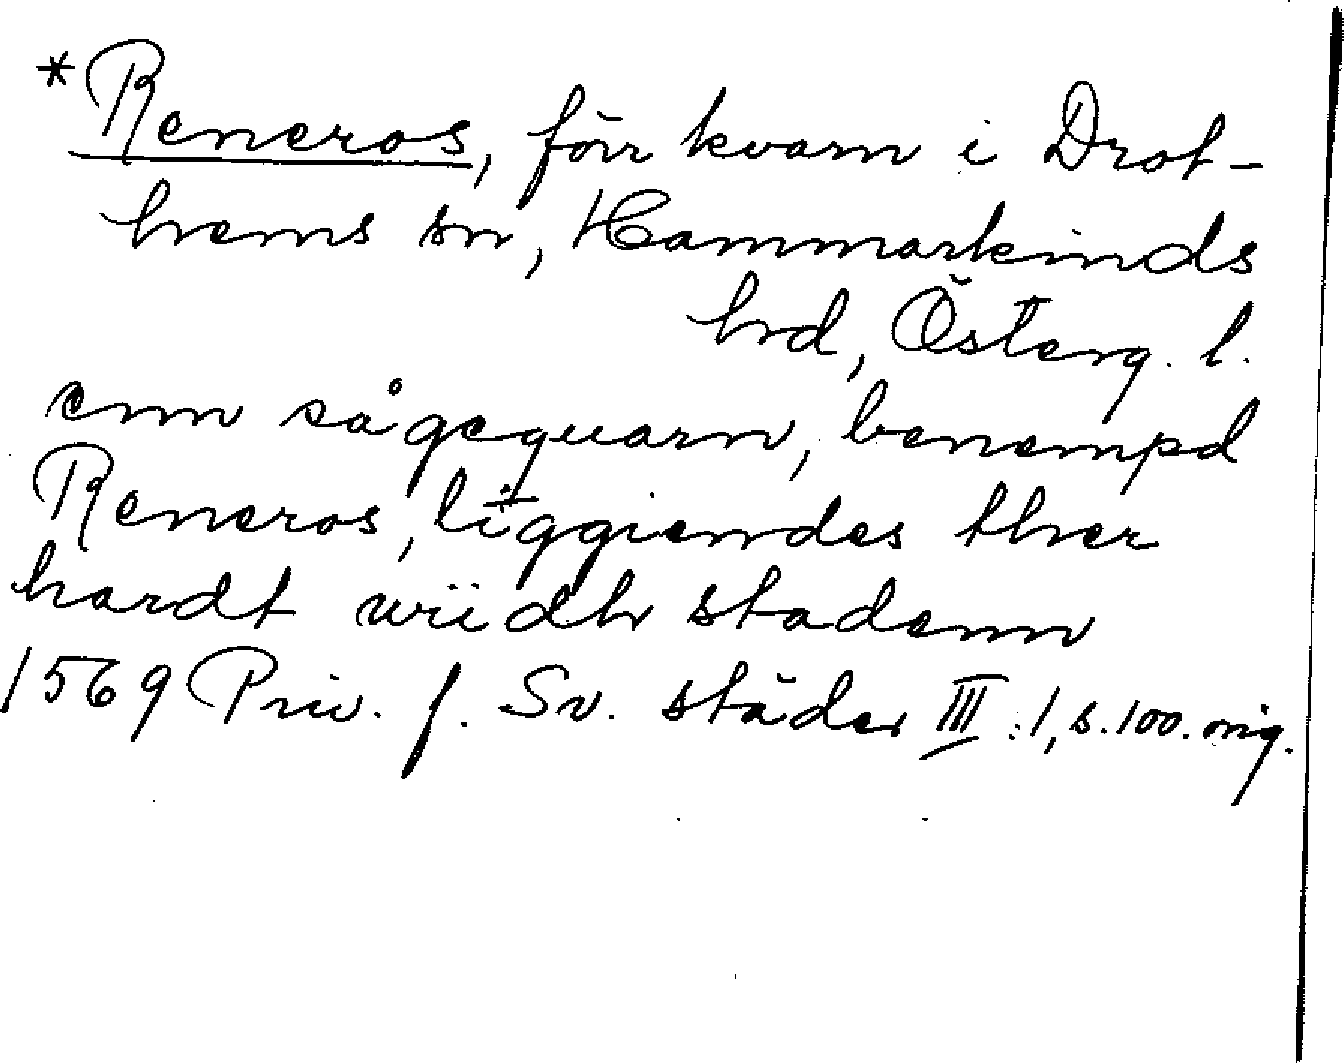 *Reneros, förr kvarn i Drot-
hems sn, Hammarkinds
hrd, Österg. l.
enn sågequarn, benempd
Reneros, liggiendes ther
hardt wiidh stadenn
1569 Priv. f. Sv. städer III:1, s. 100. orig.